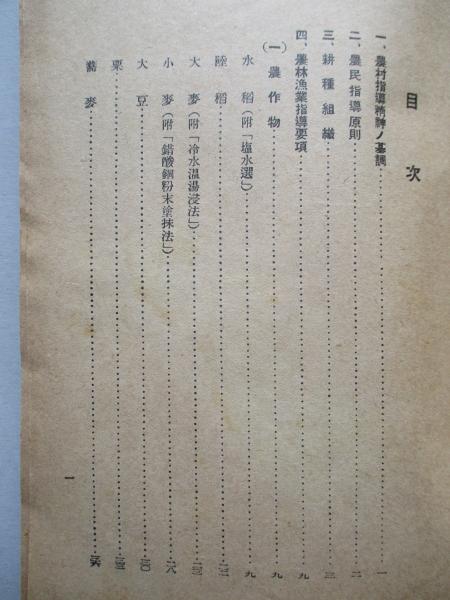 目次
一、農村指導精神ノ基調……一
二、農民指導原則……二
三、耕種組織……三
四、農林漁業指導要項……九
(一)農作物……九
水稻(附「塩水選」)……九
陸稻……
大麥(附「冷水温湯浸法」)……
小麥(附「錯酸銅粉末塗抹法」)……二八
大豆……三〇
粟……
蕎麥……
一